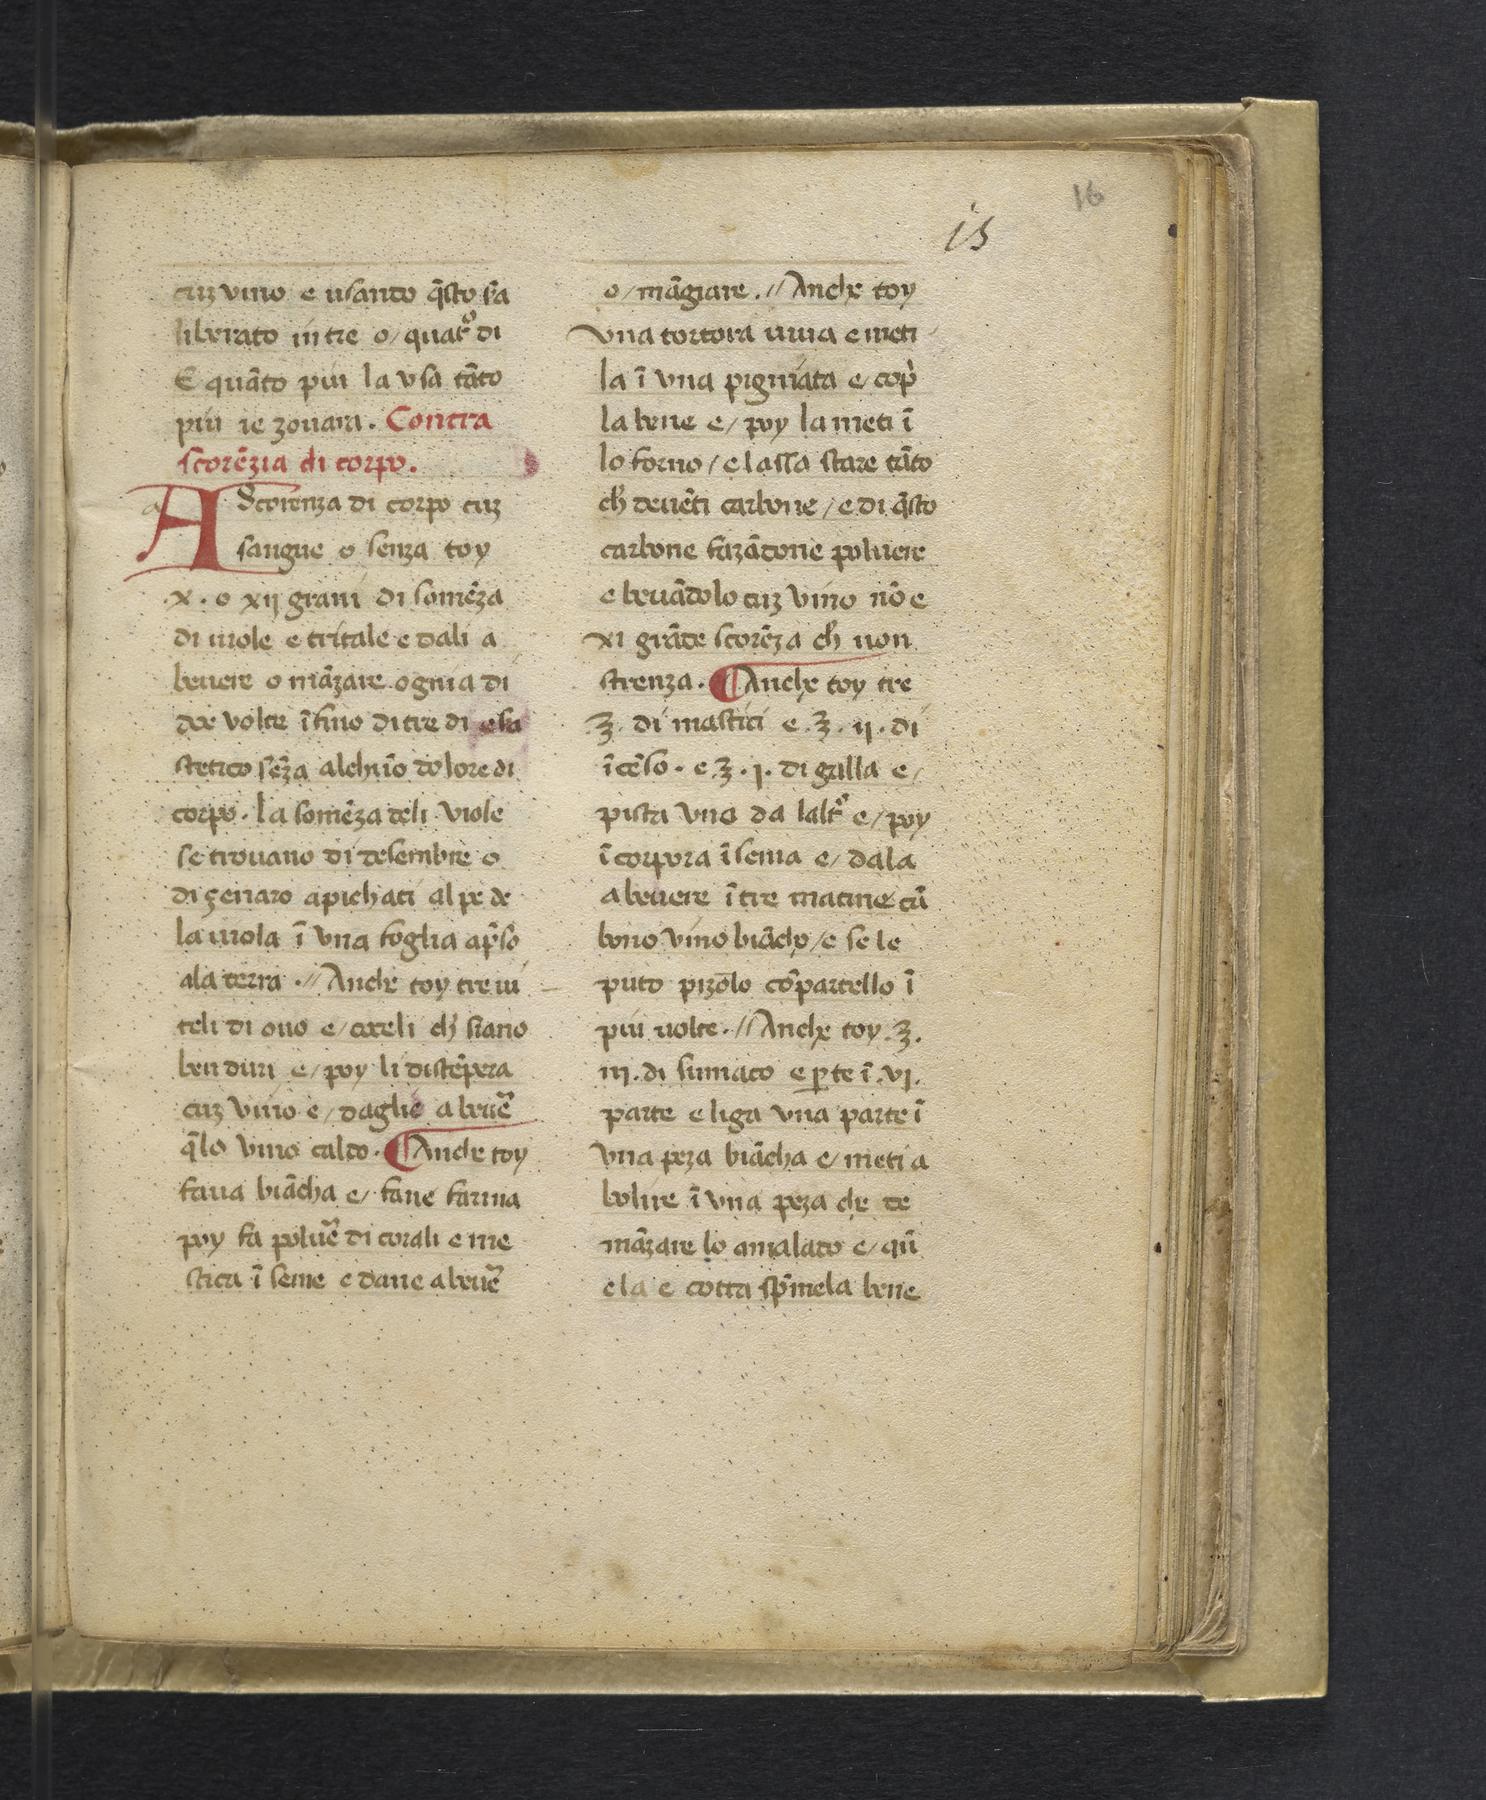 16
15
cuꝫ vino e usando q̃sto sa̅
liberato in tre o/ quat̊ di
E quãto piu la vsa tãto
piu ie zouara. Contra
scorẽzia di corpo.
a
A Scorenza di corpo cuꝫ
sangue o senza toy
.x. o xij grani di somẽza
di uiole e tritale e dali a
beuere o mãzare ognia di
doe volte ĩfino di tre di e sa
stetico sẽza alchũo dolore di
corpo. la somẽza deli viole
se trouano di desembre o
di zenaro apichati al pe de
la uiola ĩ vna foglia ap̃so
ala terra .// Anche toy tre ui
teli di ouo e/ coxeli ch̃ siano
ben duri e/ poy li distẽpera
cuꝫ vino e/ daglie a beuẽ
q̃lo vino caldo. ¶ Anche toy
faua biãcha e/ fane farina
poy fa poluẽ di corali e me
stica ĩ seme e dane a beuẽ
o/ mãgiare .// Anche toy
vna tortora uiua e meti
la ĩ vna pigniata e/ cop̃
la bene e/ poy la meti ĩ
lo forno / e lassa stare tãto
ch̃ deuẽti carbone / e di q̃sto
carbone fazãdone poluere
e beuãdolo cuꝫ vino nõ e
xi grãde scorẽza ch̃ non
strenza. ¶ Anche toy tre
ʒ. di mastici e .ʒ. ij. di
ĩcẽso. e ʒ. j. di galla e/
pista vno da lalt̊ e/ poy
ĩcorpora ĩsema e/ dala
a beuere ĩ tre matine cũ
bono vino biãcho / e se le
puto pizõlo cõpartello ĩ
piu uolte .// Anche toy .ʒ.
iij. di sumaco e ꝑte ĩ .vj.
parte e liga vna parte ĩ
vna peza biãcha e/ meti a
bolire ĩ vna peza che de
mãzare lo amalato e/ qũ
ela e cotta sp̃mela bene